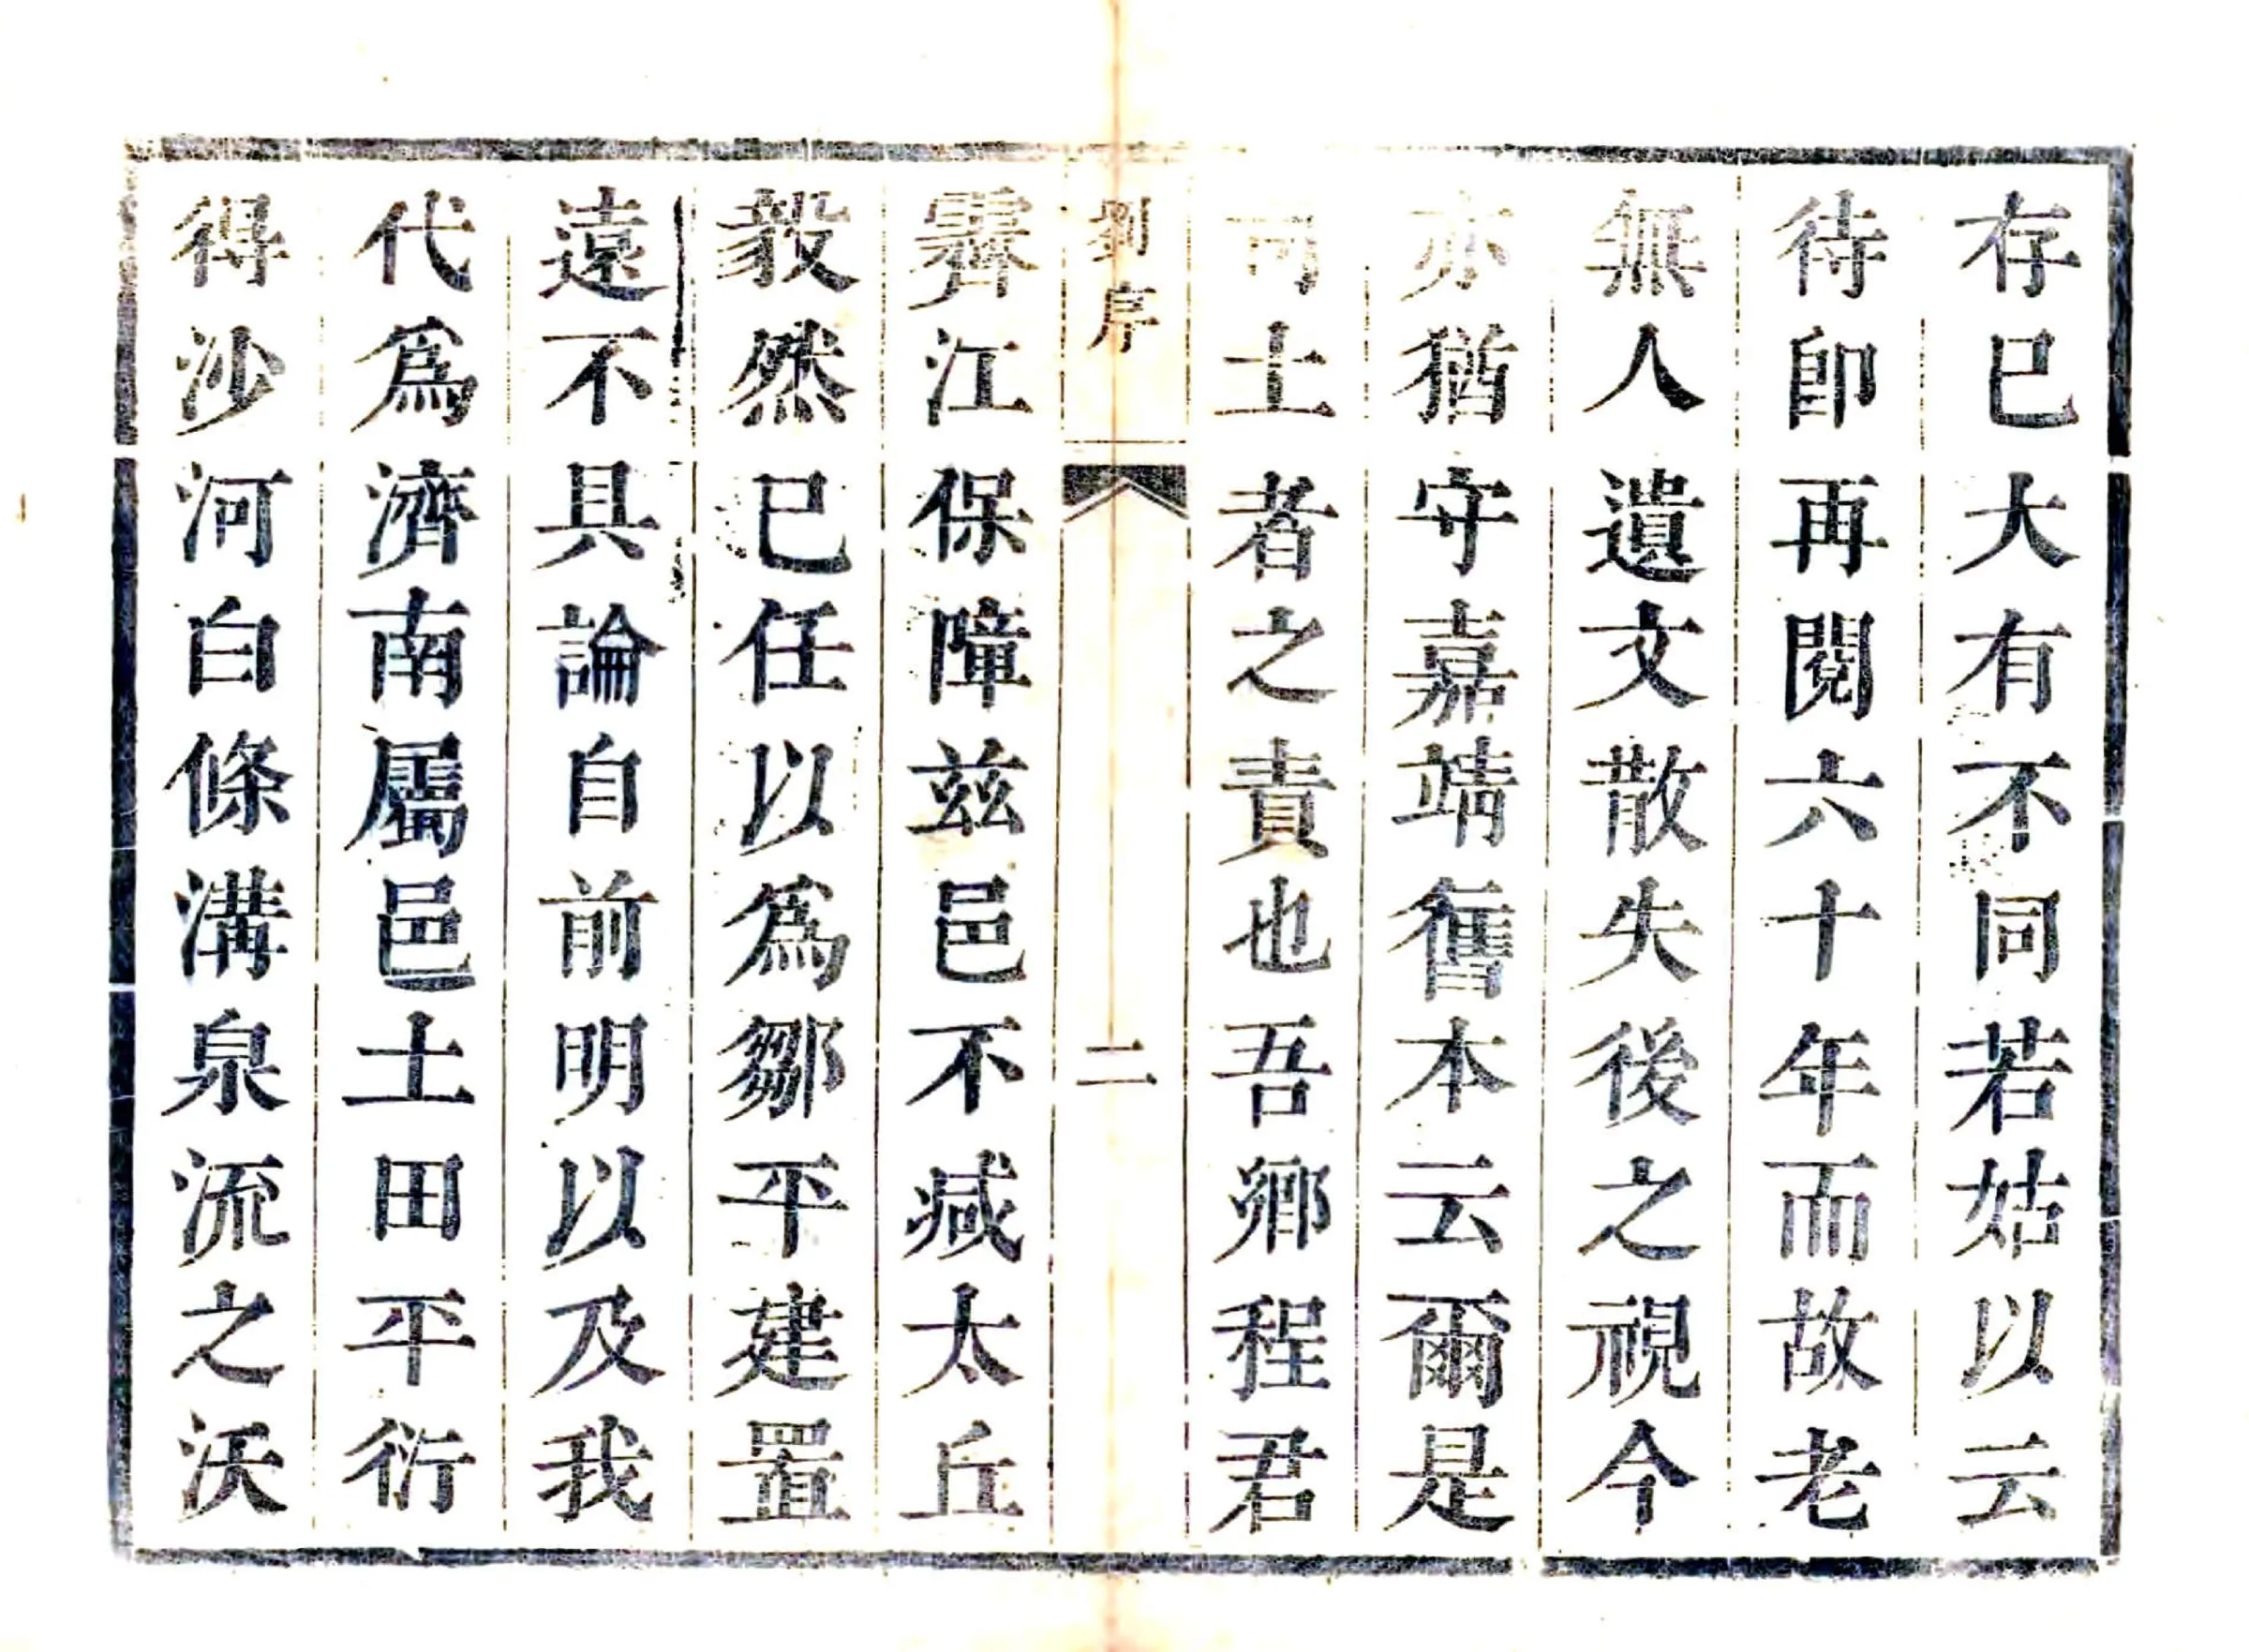 存巳大有不同若姑以云
待卽再閱六十年而故老
無人遺文散失後之視今
亦猶守嘉靖舊本云爾是
司土者之責也吾鄉程君
劉序
二
霽江保障兹邑不減太丘
毅然巳任以爲鄒平建置
遠不具論自前明以及我
代爲濟南屬邑土田平衍
得沙河白條溝泉流之沃